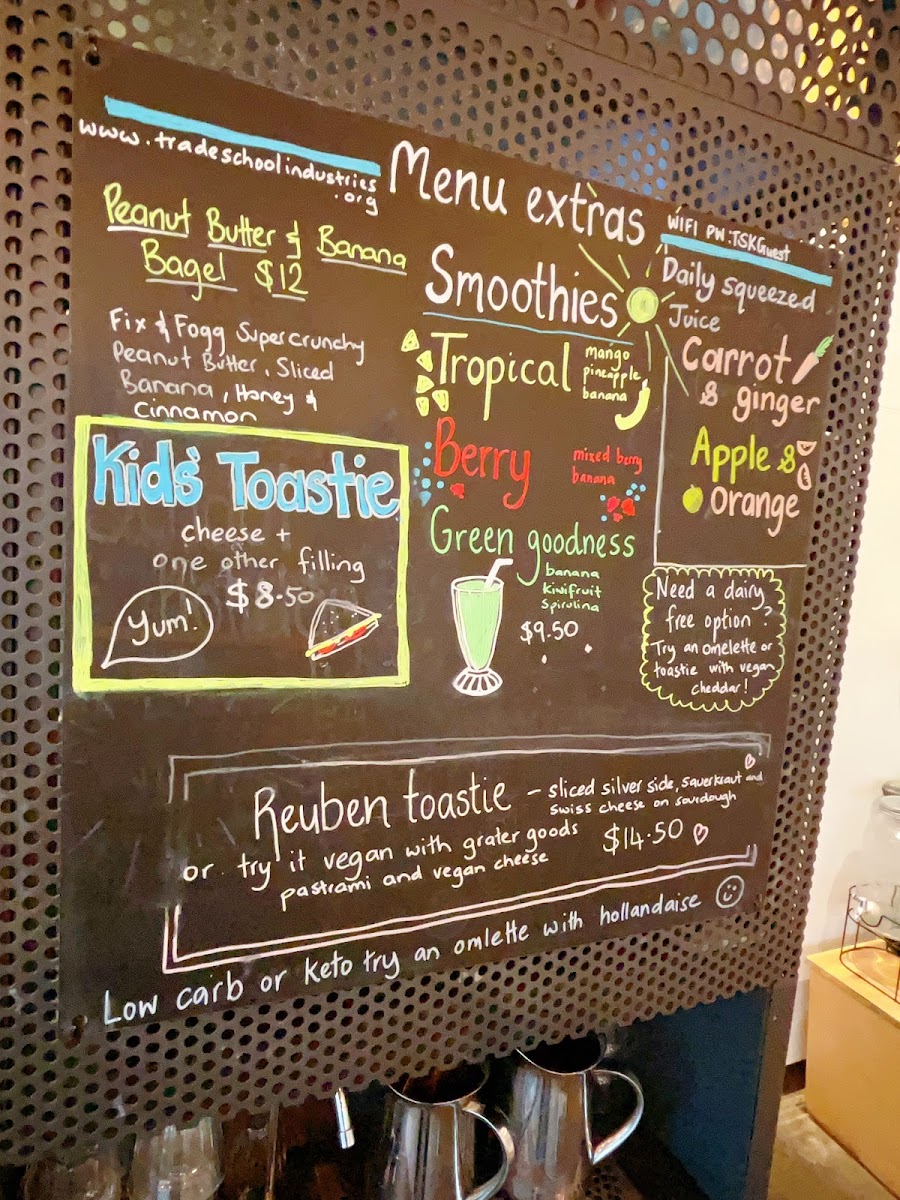 www.tradeschoolindustries
.org
Menu extras
WIFI PW: TSKGuest
Peanut Butter & Banana
Bagel $12
Fix & Fogg Supercrunchy
Peanut Butter, Sliced
Banana, Honey &
Cinnamon
Kids' Toastie
cheese +
one other filling
$8.50
Yum!
Smoothies
Tropical
mango
pineapple
banana
Berry
mixed berry
banana
Green goodness
banana
kiwifruit
Spirulina
$9.50
Daily squeezed
Juice
Carrot
& ginger
Apple &
Orange
Need a dairy
free option?
Try an omelette or
toastie with vegan
cheddar!
Reuben toastie - sliced silver side, sauerkraut and
swiss cheese on sourdough
or try it vegan with grater goods
pastrami and vegan cheese
$14.50
Low carb or keto try an omlette with hollandaise